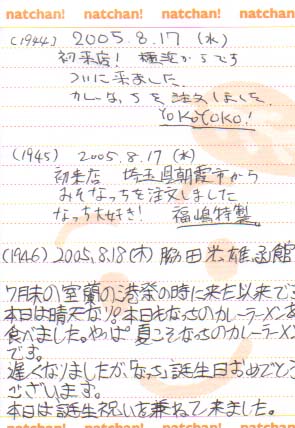 natchan! natchan! natchan! natchan!
(1944) 2005.8.17 (水)
初来店! 横浜からです
ついに来ました。
カレーなっちを注文しました。
YOKOYOKO!
(1945) 2005.8.17 (水)
初来店 埼玉県朝霞市から
みそなっちを注文しました
なっち大好き! 福嶋特製
(1946) 2005.8.18(木) 脇田 雄 函館
7月末の室蘭の港祭の時に来た以来で
本日は晴天なり。本日もなっちのカレーラーメンを
食べました。やっぱ夏こそなっちのカレーラーメン
です。
遅くなりましたが「なっち」誕生日おめでとう
ございます。
本日は誕生祝いを兼ねて来ました。
natchan! natchan! natchan! natchan!